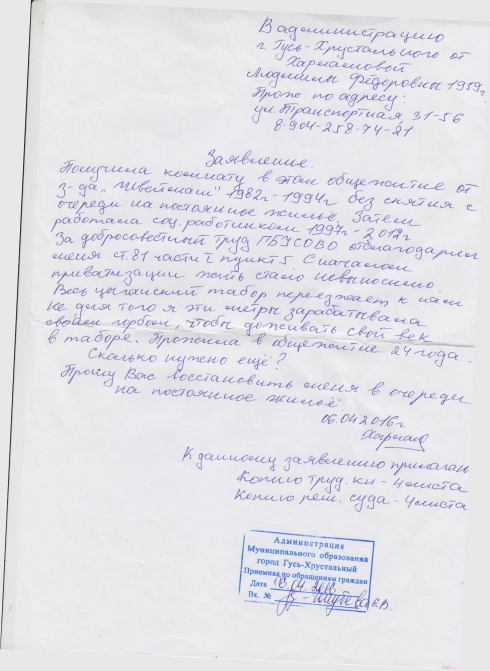 В администрацию
г. Гусь-Хрустального от
Харламовой
Людмилы Фёдоровны 1959г.
Прож. по адресу:
ул. Транспортная 31-56
8-904-258-74-21
Заявление.
Получила комнату в этом общежитие от
з-да "Швеймаш" 1982г-1994г без снятия с
очереди на постоянное жильё. Затем
работала соц. работником 1994-2012г
За добросовестный труд ГБУСОВО отблагодарил
меня ст.81 части I пункт 5. С началом
приватизации жить стало невыносимо.
Весь цыганский табор переезжает к нам
Не для того я эти метры зарабатывала
своим горбом, чтобы доживать свой век
в таборе. Прожила в общежитие 24 года.
Сколько нужно ещё?
Прошу Вас восстановить меня в очереди
на постоянное жильё
06.04 2016г
К данному заявлению прилагаю
Копию труд. кн - 4 листа
Копию реш. суда - 4 листа
Администрация
Муниципального образования
город Гусь-Хрустальный
Приемная по обращениям граждан
Дата 2016
Вх. №